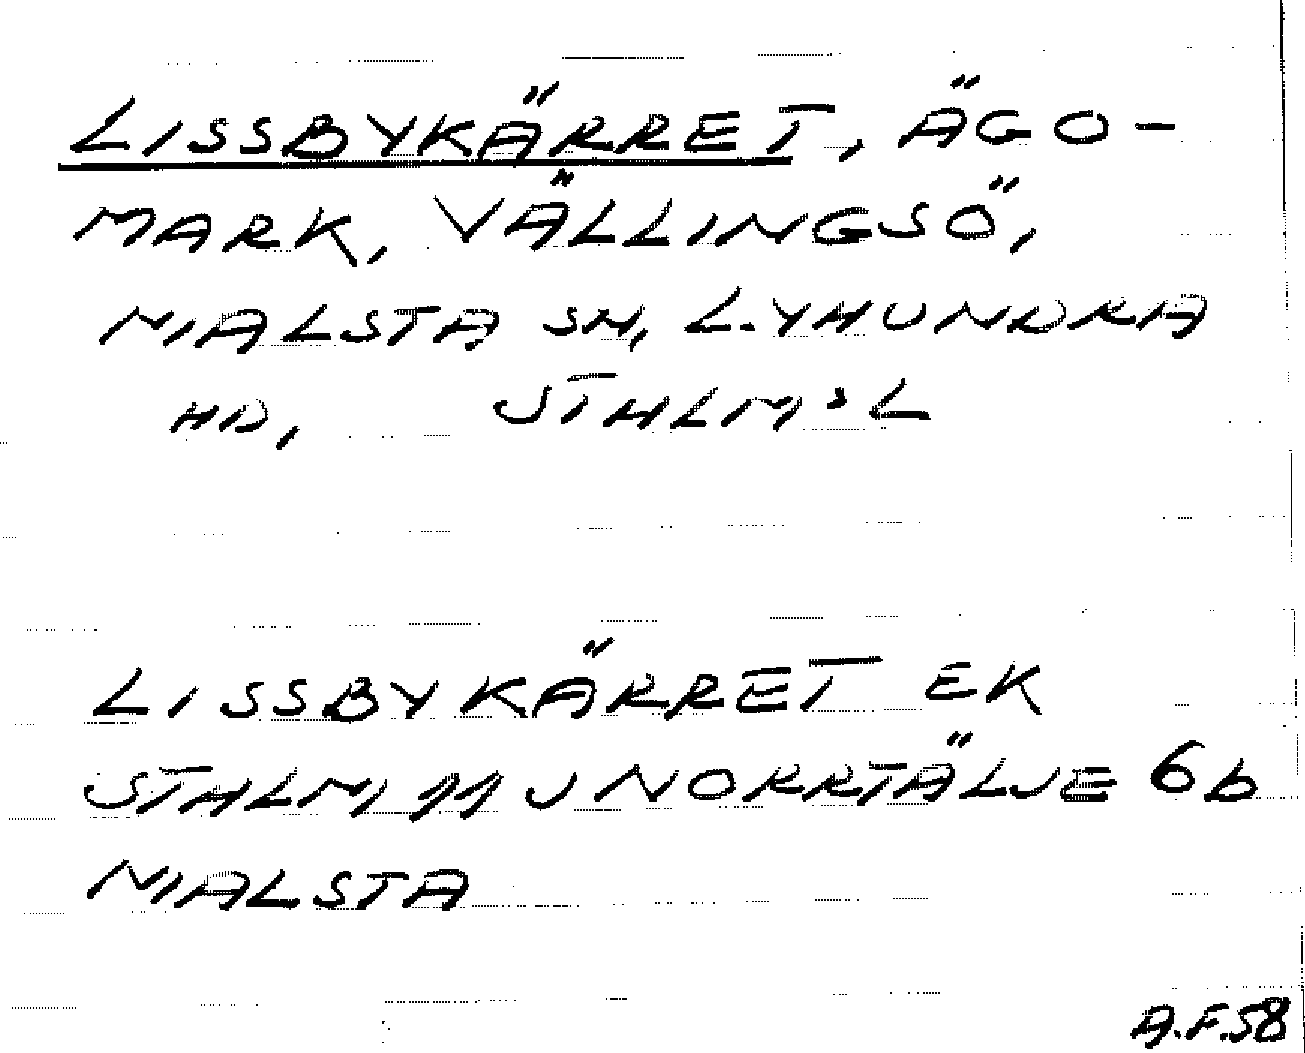 LISSBYKÄRRET, ÄGO-
MARK, VÄLLINGSÖ,
MALSTA SN, LYHUNDRA
HD, STHLM:L
LISSBYKÄRRET EK
STHLM, 11 J NORRTÄLJE 6b
MALSTA
A.F.58